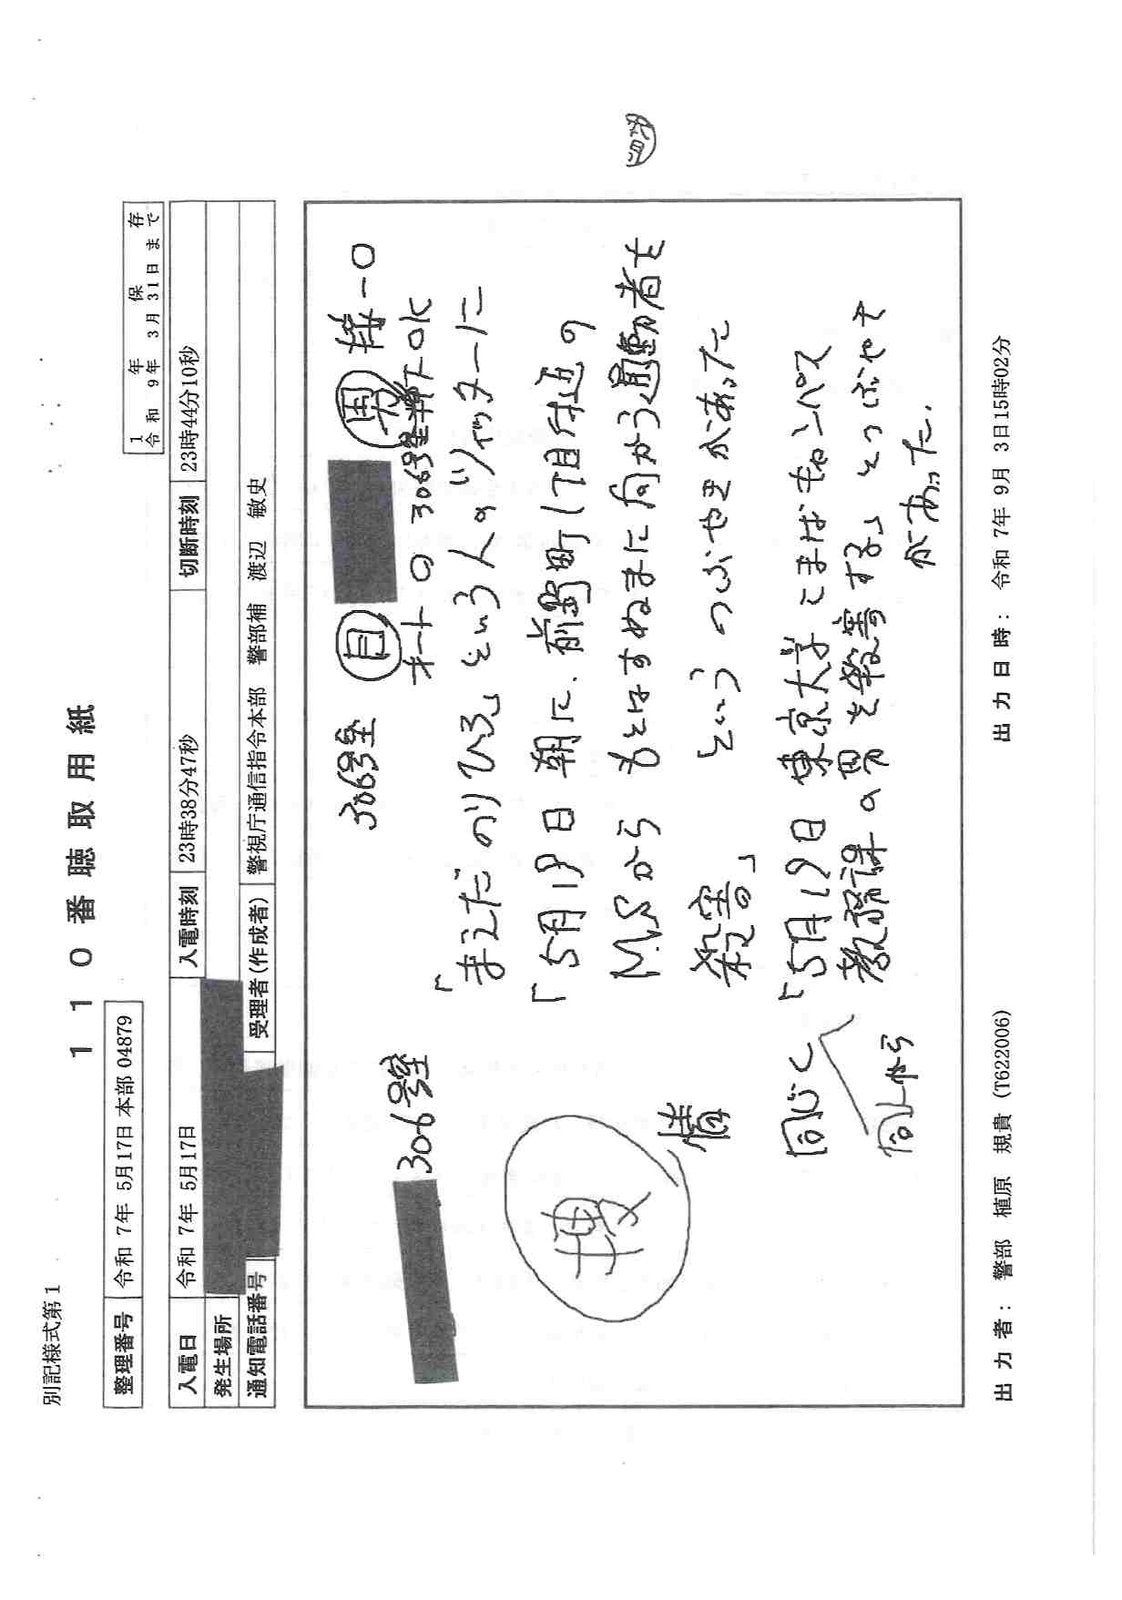 別記様式第1
110番聴取用紙
1年保存
令和 9年 3月31日まで
整理番号 令和 7年 5月17日 本部 04879
入電日 令和 7年 5月17日 入電時刻 23時38分47秒 切断時刻 23時44分10秒
発生場所
通知電話番号 受理者(作成者) 警視庁通信指令本部 警部補 渡辺 敏史
306号室 目 男
オートロ 306号室 OK
306号室
「まえだのりひろ」という人のツイッターに
「5月19日 朝に、前野町1丁目付近の
M.Sから もとはすぬまに向かう通勤者を
殺害」 というつぶやきがあった
同じく 「5月19日 東京大学こまばキャンパス
教務課の男を殺害する」とつぶやき
同人から があった.
出力者: 警部 植原 規貴 (T622006) 出力日時: 令和 7年 9月 3日15時02分